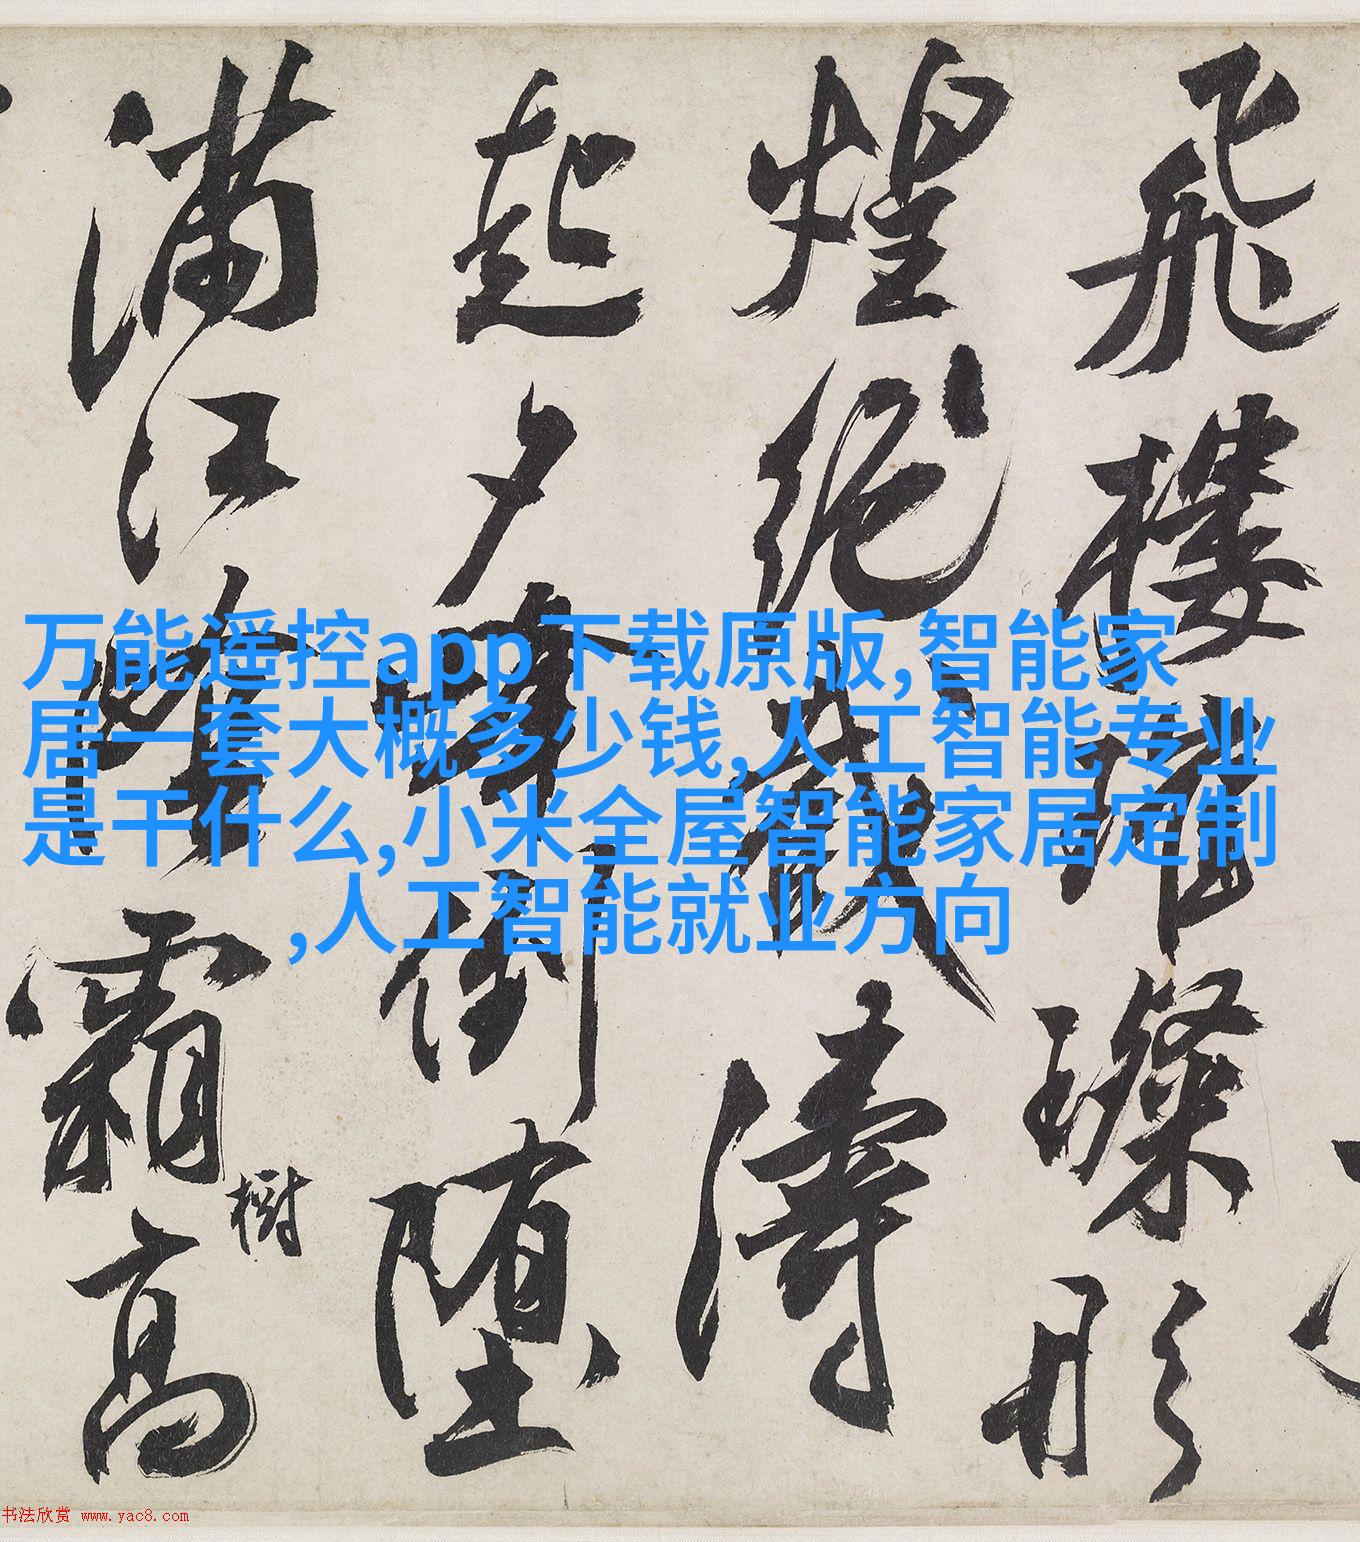 飛樓璨形
煌絕濤
起夕倒墮
滿江霜高
樹
万能遥控app下载原版,智能家
居一套大概多少钱,人工智能专业
是干什么,小米全屋智能家居定制
,人工智能就业方向
书法欣赏 www.yac8.com